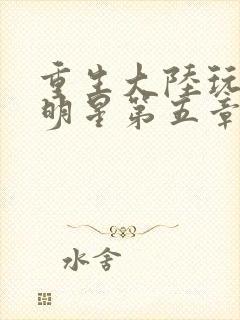 重生大陸玩
明星第五章
水舍